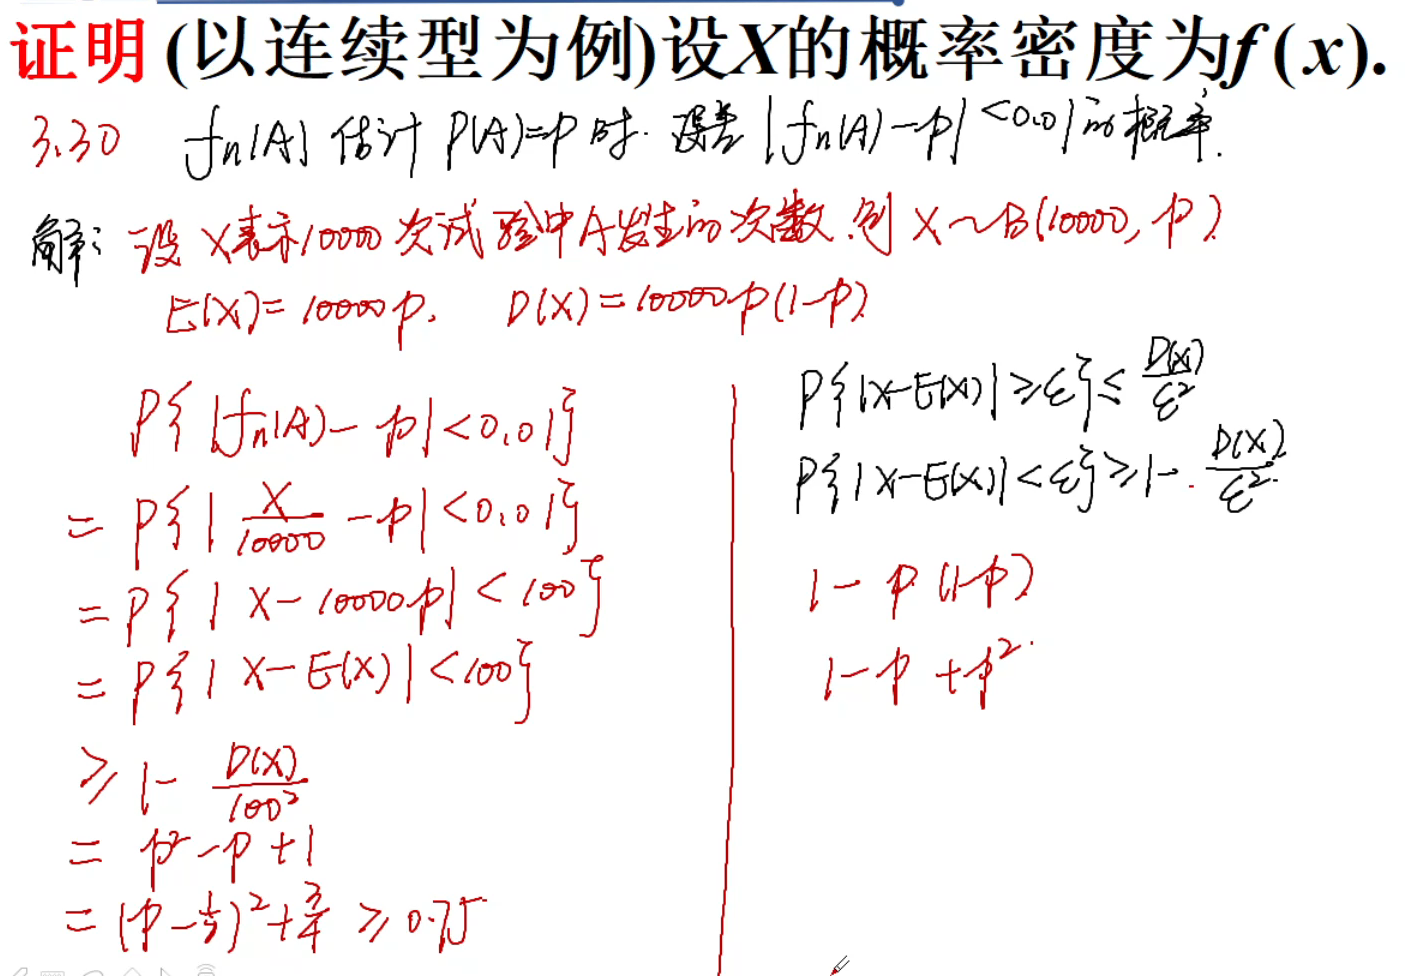 证明 (以连续型为例)设X的概率密度为f (x).
3.30 fn(A) 估计 P(A)=p 时. 误差 |fn(A)-p| <0.01 的概率.
解: 设 X表示10000次试验中A发生的次数.则 X~B(10000, p)
E(X)=10000p. D(X)=10000p(1-p)
P{|fn(A)-p|<0.01}
= P{|X/10000-p|<0.01}
= P{|X-10000p|<100}
= P{|X-E(X)|<100}
≥ 1- D(X)/100²
= p²-p+1
= (p-1/2)²+3/4 ≥ 0.75
P{|X-E(X)|≥ε}≤ D(X)/ε²
P{|X-E(X)|<ε}≥1- D(X)/ε².
1-p(1-p)
1-p+p².